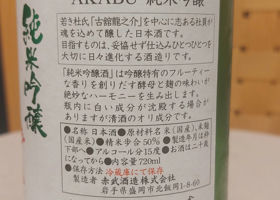 AKABU 純米吟醸
純米吟醸
若き杜氏「古舘龍之介」を中心に志ある社員が
魂を込めて醸した日本酒です。
目指すものは、妥協せず仕込みひとつひとつを
大切に日々進化する酒造りです。
「純米吟醸酒」は吟醸特有のフルーティー
な香りを創りだす酵母と麹の味わいが
絶妙なハーモニーを生み出します。
瓶内に白い成分が沈殿する場合が
ありますが清酒のオリ成分です。
●名称 日本酒●原材料名 米(国産)、米麹
(国産)●精米歩合 50% ●製造年月は枠
下部へ●アルコール分15度●お酒は二十歳
になってから●内容量720ml
●保存方法 冷蔵庫にて保存
製造者 赤武酒造株式会社
岩手県盛岡市北飯岡1-8-60